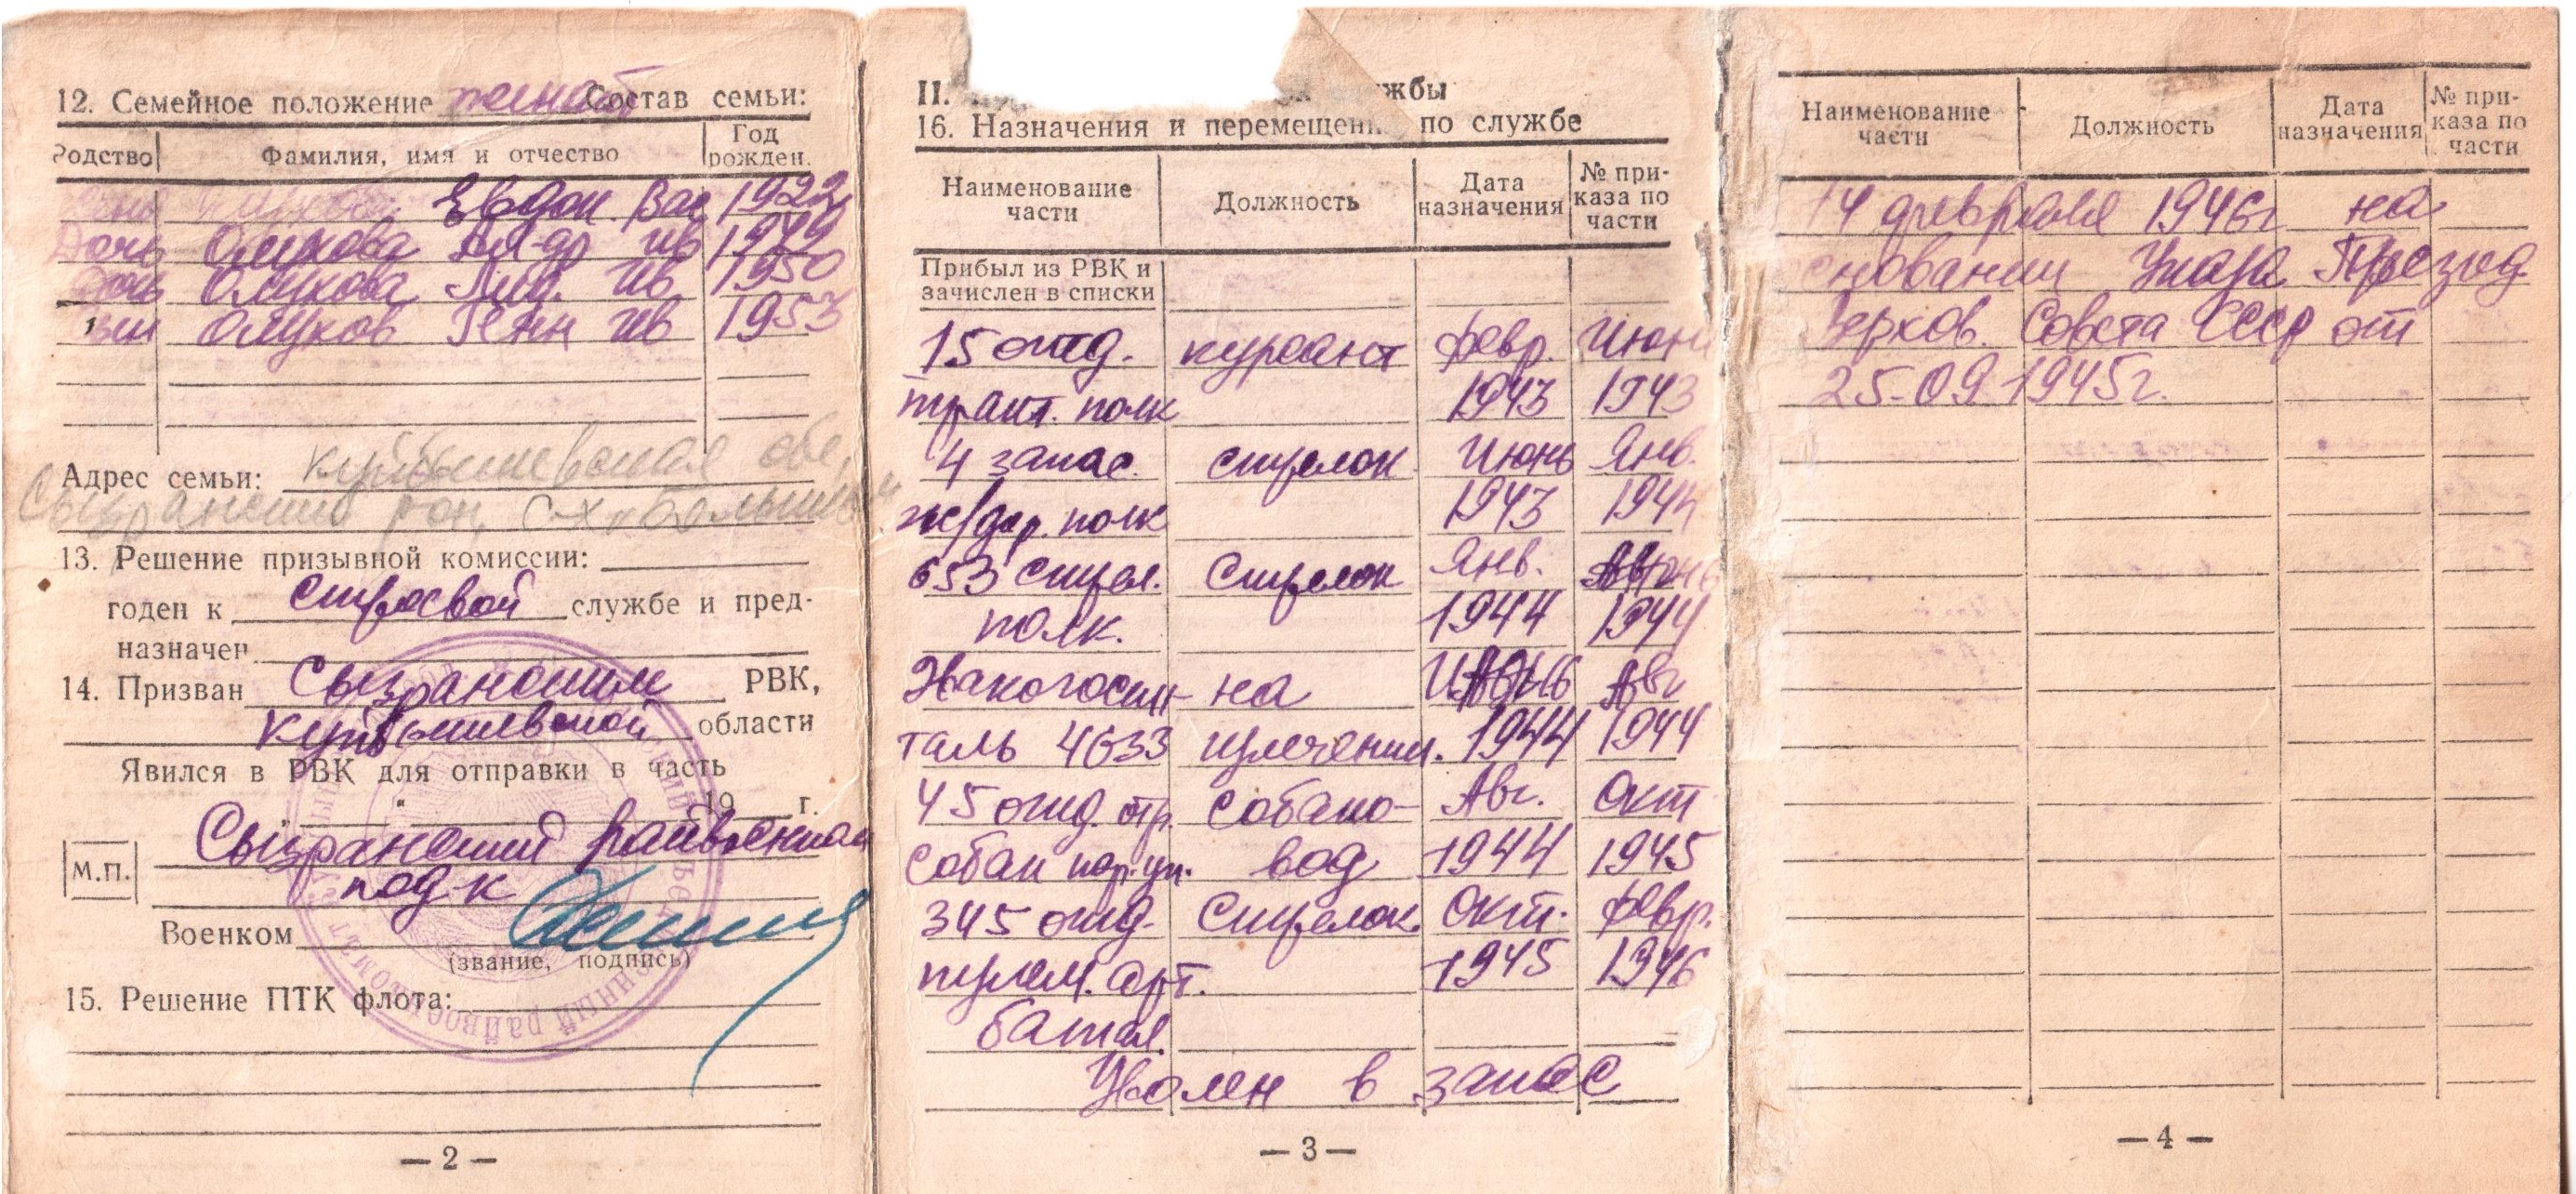 12. Семейное положение женат Состав семьи:
Родство Фамилия, имя и отчество Год рожден.
Евдок. Вас 1922
Дочь Олухова Ал-др Ив 1949
Дочь Олухова Лид. Ив 1950
Сын Олухов Генн Ив 1953
Адрес семьи: Куйбышевская обл,
Сызранский рон, С-х "Большевик
13. Решение призывной комиссии:
годен к строевой службе и пред-
назначен
14. Призван Сызранским РВК,
Куйбышевской области
Явился в РВК для отправки в часть
19 г.
Сызранский райвоенком
М.П.
под-к
Военком
(звание, подпись)
15. Решение ПТК флота:
— 2 —
II. службы
16. Назначения и перемещения по службе
Наименование части Должность Дата назначения № при-каза по части
Прибыл из РВК и
зачислен в списки
15 отд. курсант Февр. Июнь
тракт. полк 1943 1943
4 запас. стрелок Июнь Янв.
ж/дор. полк 1943 1944
653 стрел. Стрелок Янв.
полк. 1944 1944
Эвакогоспи- на Авг
таль 4633 излечении. 1944 1944
45 отд. отр. Собако- Авг. Окт
собак вод 1944 1945
345 отд. Стрелок Окт. Февр.
пулем. арт. 1945 1946
батал.
Уволен в запас
— 3 —
Наименование части Должность Дата назначения № при-каза по части
14 февраля 1946г на
основании Указа Презид.
Верхов. Совета СССР от
25-09 1945г.
— 4 —